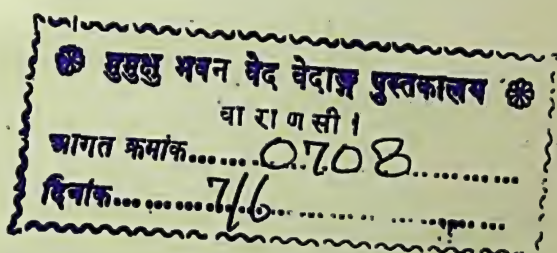 ❀ मुमुक्षु भवन वेद वेदाङ्ग पुस्तकालय ❀
वा रा ण सी ।
आगत क्रमांक......0708......
दिनांक......7/6......